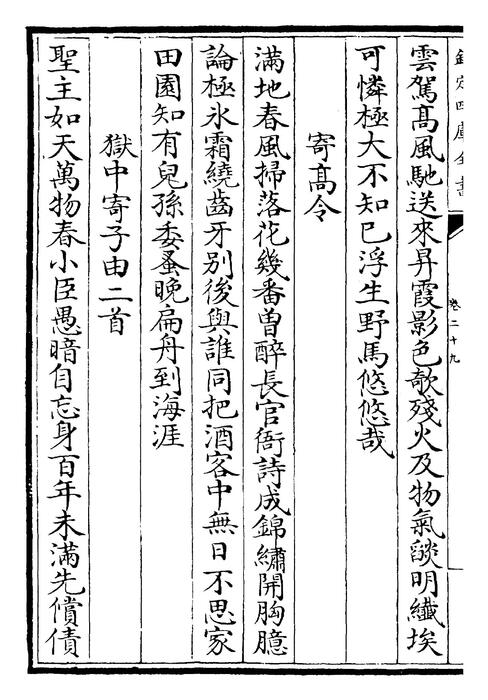 欽定四庫全書
卷二十九
雲駕髙風馳送來昇霞影色欹殘火及物氣𦦨明纎埃
可憐極大不知已浮生野馬悠悠哉
寄髙令
滿地春風掃落花幾番曽醉長官衙詩成錦繡開胸臆
論極氷霜繞齒牙别後與誰同把酒客中無日不思家
田園知有兒孫委蚤晚扁舟到海涯
獄中寄子由二首
聖主如天萬物春小臣愚暗自忘身百年未滿先償債